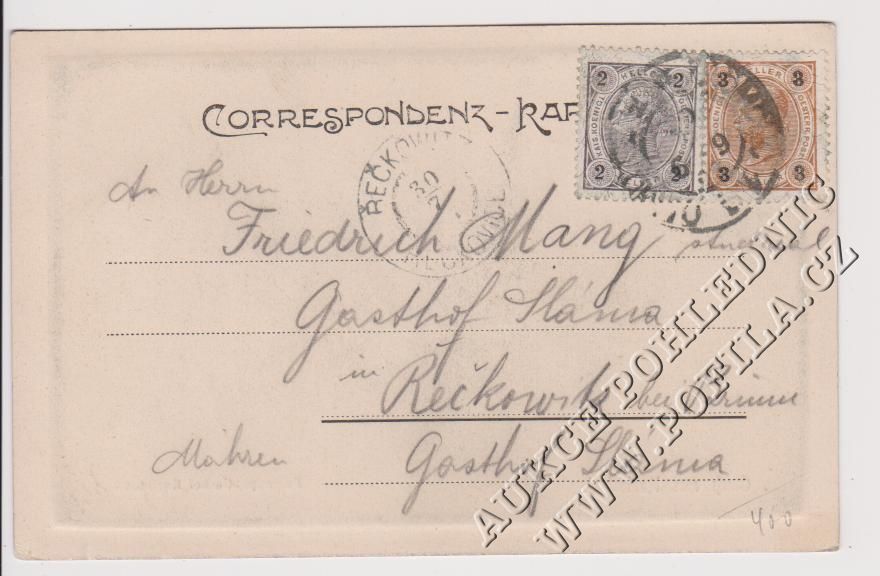 CORRESPONDENZ-KAR
2 HELLER 2
KAIS. KOENIGL. OESTERR. POST
2 2
3 HELLER 3
KAIS. KOENIGL. OESTERR. POST
3 3
ŘEČKOWITZ
30
7
ŘEČKOVICE
An Herrn
Friedrich Mang
Gasthof Sláma
in
Rečkowitz bei Brünn
Mähren
Gasthof Sláma
400
AUKCE POHLEDNIC
WWW.POFILA.CZ